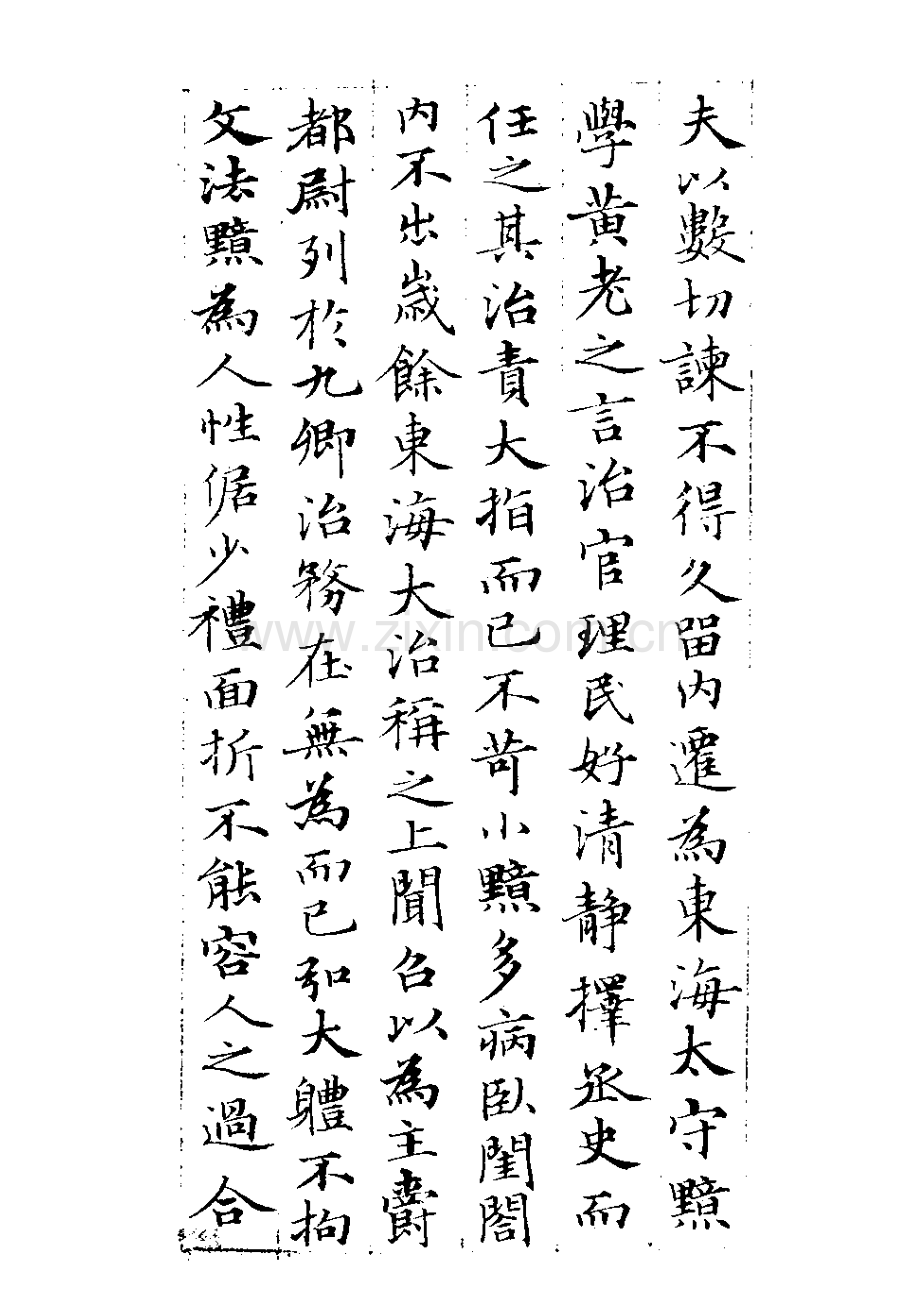 夫以數切諫不得久留內遷為東海太守黯
學黃老之言治官理民好清靜擇丞史而
任之其治責大指而已不苛小黯多病臥閨閤
內不出歲餘東海大治稱之上聞召以為主爵
都尉列於九卿治務在無為而已弘大體不拘
文法黯為人性倨少禮面折不能容人之過合
www.zixin.com.cn